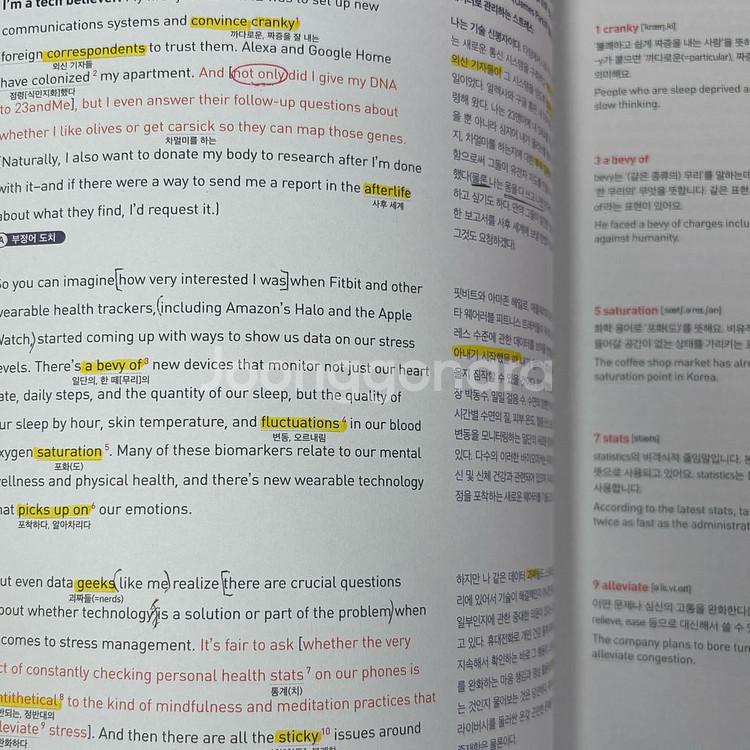 I'm a tech believer.
was to set up new
communications systems and convince cranky¹
까다로운, 짜증을 잘 내는
foreign correspondents to trust them. Alexa and Google Home
외신 기자들
have colonized² my apartment. And [not only did I give my DNA
점령[식민지화]했다
to 23andMe], but I even answer their follow-up questions about
whether I like olives or get carsick so they can map those genes.
차멀미를 하는
(Naturally, I also want to donate my body to research after I'm done
with it–and if there were a way to send me a report in the afterlife
사후 세계
about what they find, I'd request it.)
A 부정어 도치
So you can imagine [how very interested I was] when Fitbit and other
wearable health trackers, (including Amazon's Halo and the Apple
Watch,) started coming up with ways to show us data on our stress
levels. There's a bevy of³ new devices that monitor not just our heart
일단의, 한 떼[무리]의
rate, daily steps, and the quantity of our sleep, but the quality of
our sleep by hour, skin temperature, and fluctuations⁴ in our blood
변동, 오르내림
oxygen saturation⁵. Many of these biomarkers relate to our mental
포화(도)
wellness and physical health, and there's new wearable technology
that picks up on⁶ our emotions.
포착하다, 알아차리다
But even data geeks (like me) realize [there are crucial questions
괴짜들(=nerds)
about whether technology is a solution or part of the problem) when
it comes to stress management. It's fair to ask [whether the very
act of constantly checking personal health stats⁷ on our phones is
통계(치)
antithetical⁸ to the kind of mindfulness and meditation practices that
반되는, 정반대의
alleviate⁹ stress]. And then there are all the sticky¹⁰ issues around
완화하다
관리하는 스트레스
나는 기술 신봉자이다.
는 새로운 통신 시스템을
외신 기자들이
일이었다. 알렉사와 구글
령해 왔다. 나는 23앤미에
을 뿐 아니라 심지어 내가
지, 차멀미를 하는지에 대한
함으로써 그들이 유전자
했다(물론 나는 몸을 다
하고 싶기도 하다.
한 보고서를 사후 세계에
그것도 요청하겠다).
핏비트와 아마존 헤일로,
타 웨어러블 피트니스
레스 수준에 관한 데이터를
아내기 시작했을 때
을지 짐작할 수 있을
상 박동수, 일일 걸음 수, 수면의
시간별 수면의 질, 피부 온도,
변동을 모니터링하는 일단의
있다. 다수의 이러한
신 및 신체 건강과 관련되어
정을 포착하는 새로운 웨어러블
하지만 나 같은 데이터 괴짜들도
리에 있어서 기술이 해결책인지
일부인지에 관한 중대한 의문이
고 있다. 휴대전화로 개인 건강
지속해서 확인하는 바로 그
를 완화하는 마음 챙김과 명상
는 것인지 물어보는 것은
라이버시를 둘러싼 온갖 곤란한
1 cranky [kræŋ.ki]
'불쾌하고 쉽게 짜증을 내는 사람'을 뜻하
-y가 붙으면 '까다로운(=particular), 짜증
의미해요.
People who are sleep deprived a
slow thinking.
3 a bevy of
bevy는 '(같은 종류의) 무리'를 말하는데
'한 무리의' 무엇을 뜻합니다. 같은 표현
of라는 표현이 있어요.
He faced a bevy of charges inclu
against humanity.
5 saturation
화학 용어로 '포화(도)'를 뜻해요. 비유적
들어갈 공간이 없는 상태를 가리키는 표
The coffee shop market has alr
saturation point in Korea.
7 stats [stæts]
statistics의 비격식적 줄임말입니다. 본
뜻으로 사용되고 있어요. statistics는
사용합니다.
According to the latest stats, ta
twice as fast as the administrat
9 alleviate
어떤 문제나 심신의 고통을 완화한다는
relieve, ease 등으로 대신해서 쓸 수 있
The company plans to bore tun
alleviate congestion.
Joonggonara